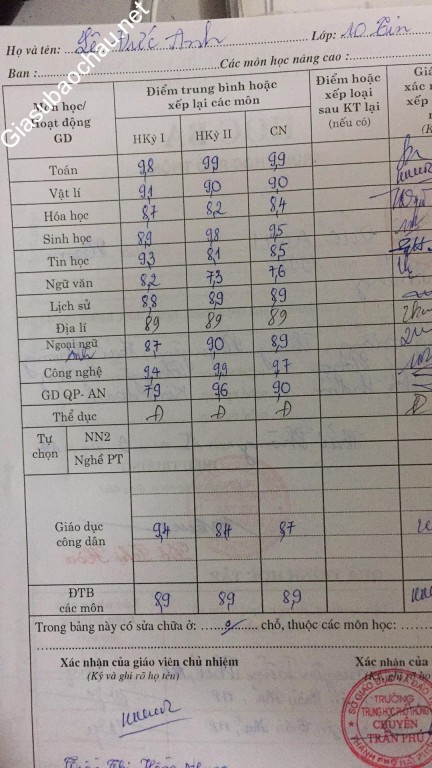 Giasubaochau.net
Họ và tên: Lê Đức Anh Lớp: 10 Tin
Ban : Các môn học nâng cao :
Môn học/ Hoạt động GD Điểm trung bình hoặc xếp lại các môn Điểm hoặc xếp loại sau KT lại (nếu có)
HKỳ I HKỳ II CN
Toán 9,8 9,9 9,9
Vật lí 9,1 9,0 9,0
Hóa học 8,7 8,2 8,4
Sinh học 8,9 9,8 9,5
Tin học 9,3 8,1 8,5
Ngữ văn 8,2 7,3 7,6
Lịch sử 8,8 8,9 8,9
Địa lí 8,9 8,9 8,9
Ngoại ngữ Anh 8,7 9,0 8,9
Công nghệ 9,4 9,9 9,7
GD QP- AN 7,9 9,6 9,0
Thể dục Đ Đ Đ Đ
Tự chọn NN2
Nghề PT
Giáo dục công dân 9,4 8,4 8,7
ĐTB các môn 8,9 8,9 8,9
Trong bảng này có sửa chữa ở: chỗ, thuộc các môn học:
Xác nhận của giáo viên chủ nhiệm Xác nhận của
(Ký và ghi rõ họ tên) (Ký, ghi rõ họ
SỞ GIÁO DỤC VÀ ĐÀO TẠO
TRƯỜNG
TRUNG HỌC PHỔ THÔNG
CHUYÊN
TRẦN PHÚ
THÀNH PHỐ HẢI